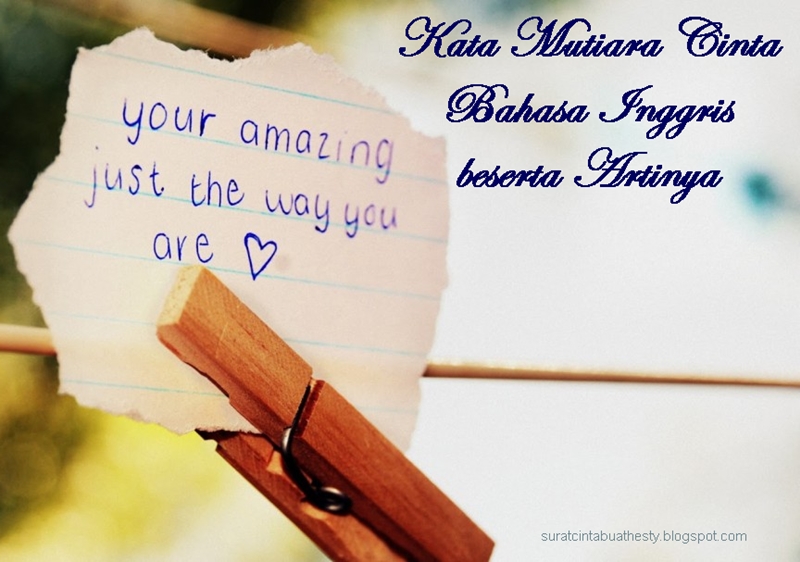 your amazing
just the way you
are ♡
Kata Mutiara Cinta
Bahasa Inggris
beserta Artinya
suratcintabuathesty.blogspot.com